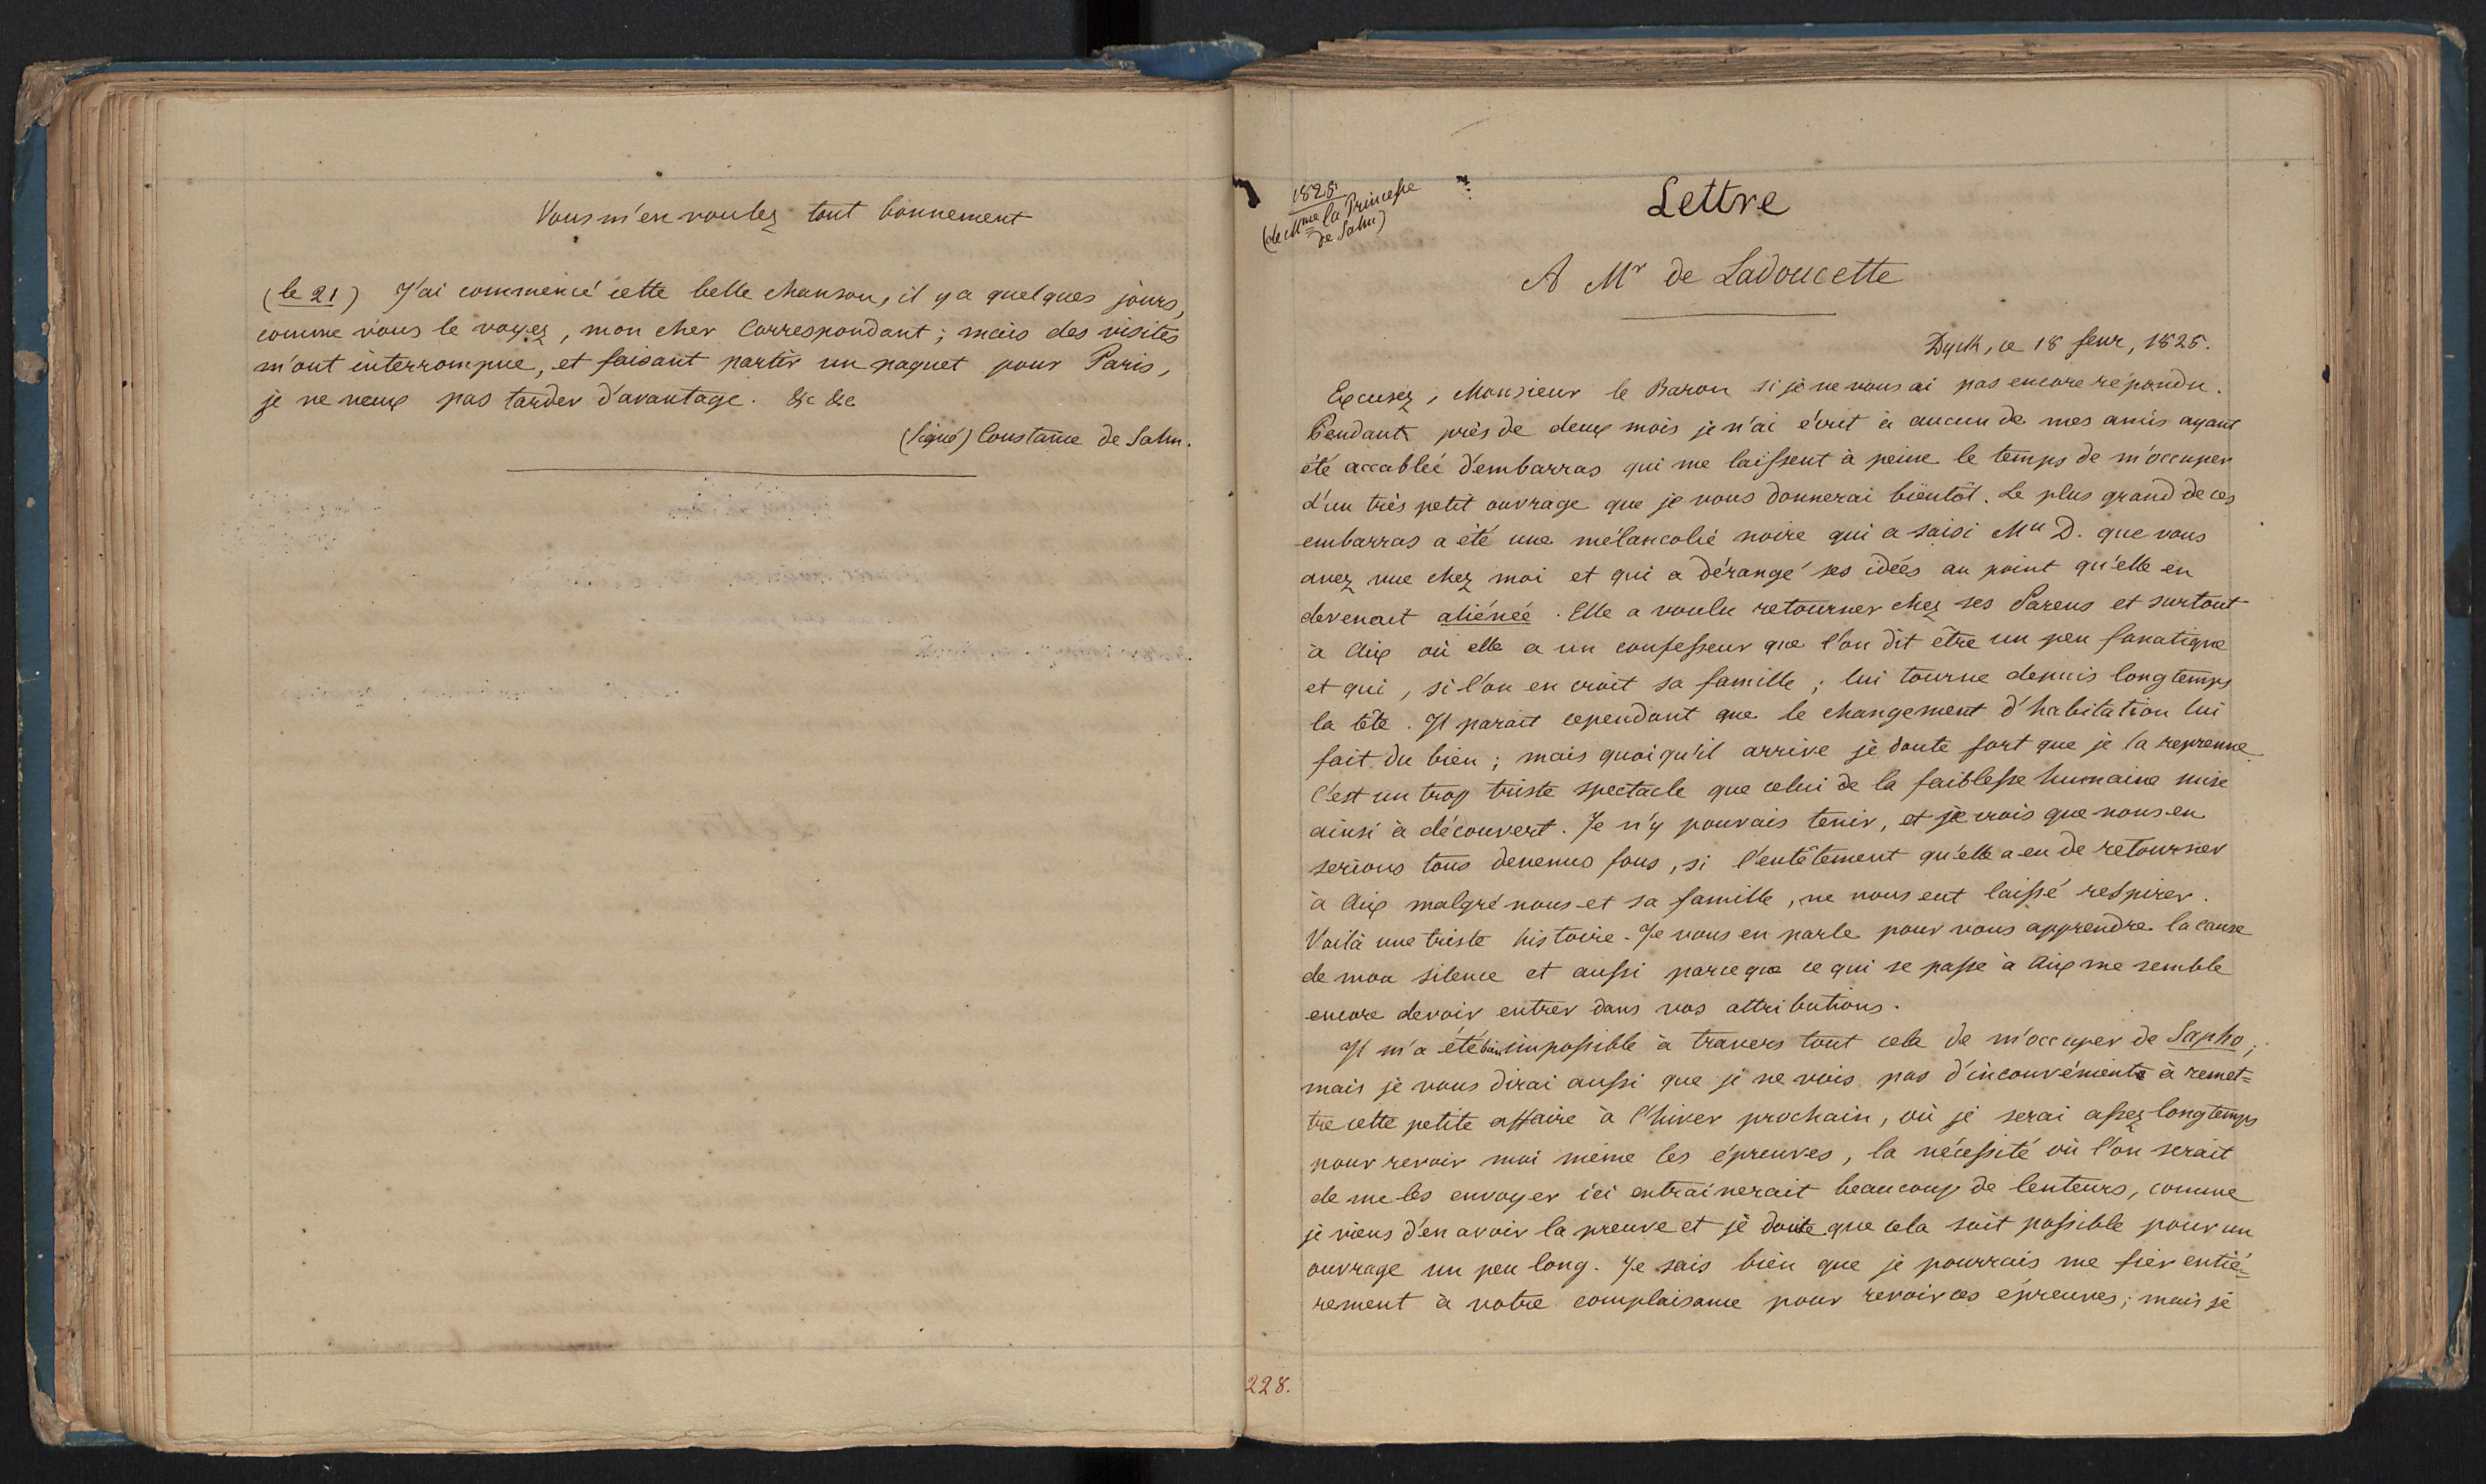 Vous m'en voulez tout bonnement
(le 21) J'ai commencé cette belle chanson, il y a quelques jours,
comme vous le voyez, mon cher Correspondant ; mais des visites
m'ont interrompue, et faisant partir un paquet pour Paris,
je ne veux pas tarder d'avantage. &c &c
(Signé) Constance de Salm.
1825
(de Mme la Princesse
de Salm)
Lettre
A Mr de Ladoucette
Dyck, ce 18 fevr, 1825.
Excusez, Monsieur le Baron si je ne vous ai pas encore répondu.
Pendant près de deux mois je n'ai écrit à aucun de mes amis ayant
été accablée d'embarras qui me laissent à peine le temps de m'occuper
d'un très petit ouvrage que je vous donnerai bientôt. Le plus grand de ces
embarras a été une mélancolie noire qui a saisi Mlle D. que vous
avez vue chez moi et qui a dérangé ses idées au point qu'elle en
devenait aliénée. Elle a voulu retourner chez ses Parens et surtout
à Aix où elle a un confesseur que l'on dit être un peu fanatique
et qui, si l'on en croit sa famille ; lui tourne depuis longtemps
la tête. Il parait cependant que le changement d'habitation lui
fait du bien ; mais quoiqu'il arrive je doute fort que je la reprenne.
C'est un trop triste spectacle que celui de la faiblesse humaine mise
ainsi à découvert. Je n'y pouvais tenir, et je crois que nous en
serions tous devenus fous, si l'entêtement qu'elle a eu de retourner
à Aix malgré nous et sa famille, ne nous eut laissé respirer.
Voilà une triste histoire. Je vous en parle pour vous apprendre la cause
de mon silence et aussi parceque ce qui se passe à Aix me semble
encore devoir entrer dans vos attributions.
Il m'a été bien impossible à travers tout cela de m'occuper de Sapho ;
mais je vous dirai aussi que je ne vois pas d'inconvénient à remet=
tre cette petite affaire à l'hiver prochain, où je serai assez longtemps
pour revoir moi même les épreuves, la nécessité où l'on serait
de me les envoyer ici entrainerait beaucoup de lenteurs, comme
je viens d'en avoir la preuve et je doute que cela soit possible pour un
ouvrage un peu long. Je sais bien que je pourrais me fier entiè=
rement à votre complaisance pour revoir ces épreuves ; mais je
228.